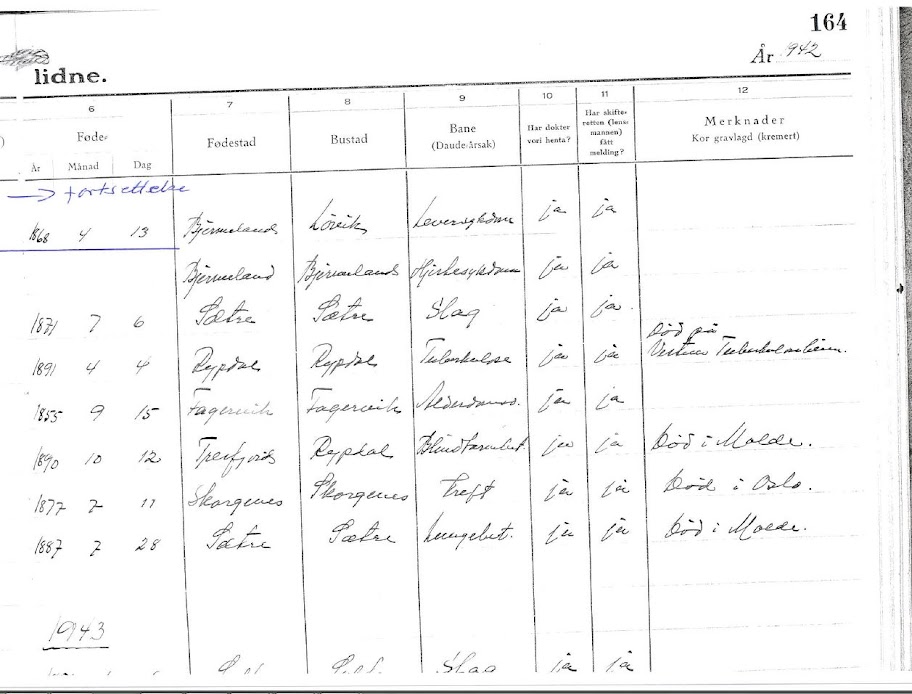 164
År 1942
lidne.
6 7 8 9 10 11 12
Føde- Fødestad Bustad Bane (Daude-årsak) Har dokter vori henta? Har skifte-retten (lens-mannen) fått melding? Merknader Kor gravlagd (kremert)
År Månad Dag
→ fortsettelse
1868 4 13 Bjermelands Løvik Leversykdom ja ja
Bjermeland Bjermelands Hjertesykdom ja ja
1871 7 6 Sætre Sætre Slag ja ja
1891 4 4 Rypdal Rypdal Tuberkulose ja ja Død på
1855 9 15 Fagervik Fagervik ja ja
1890 10 12 Tresfjord Rypdal ja ja Død i Molde.
1877 7 11 Skorgenes Skorgenes Kreft ja ja Død i Oslo.
1887 7 28 Sætre Sætre Lungebet. ja ja Død i Molde.
1943
Slag ja ja